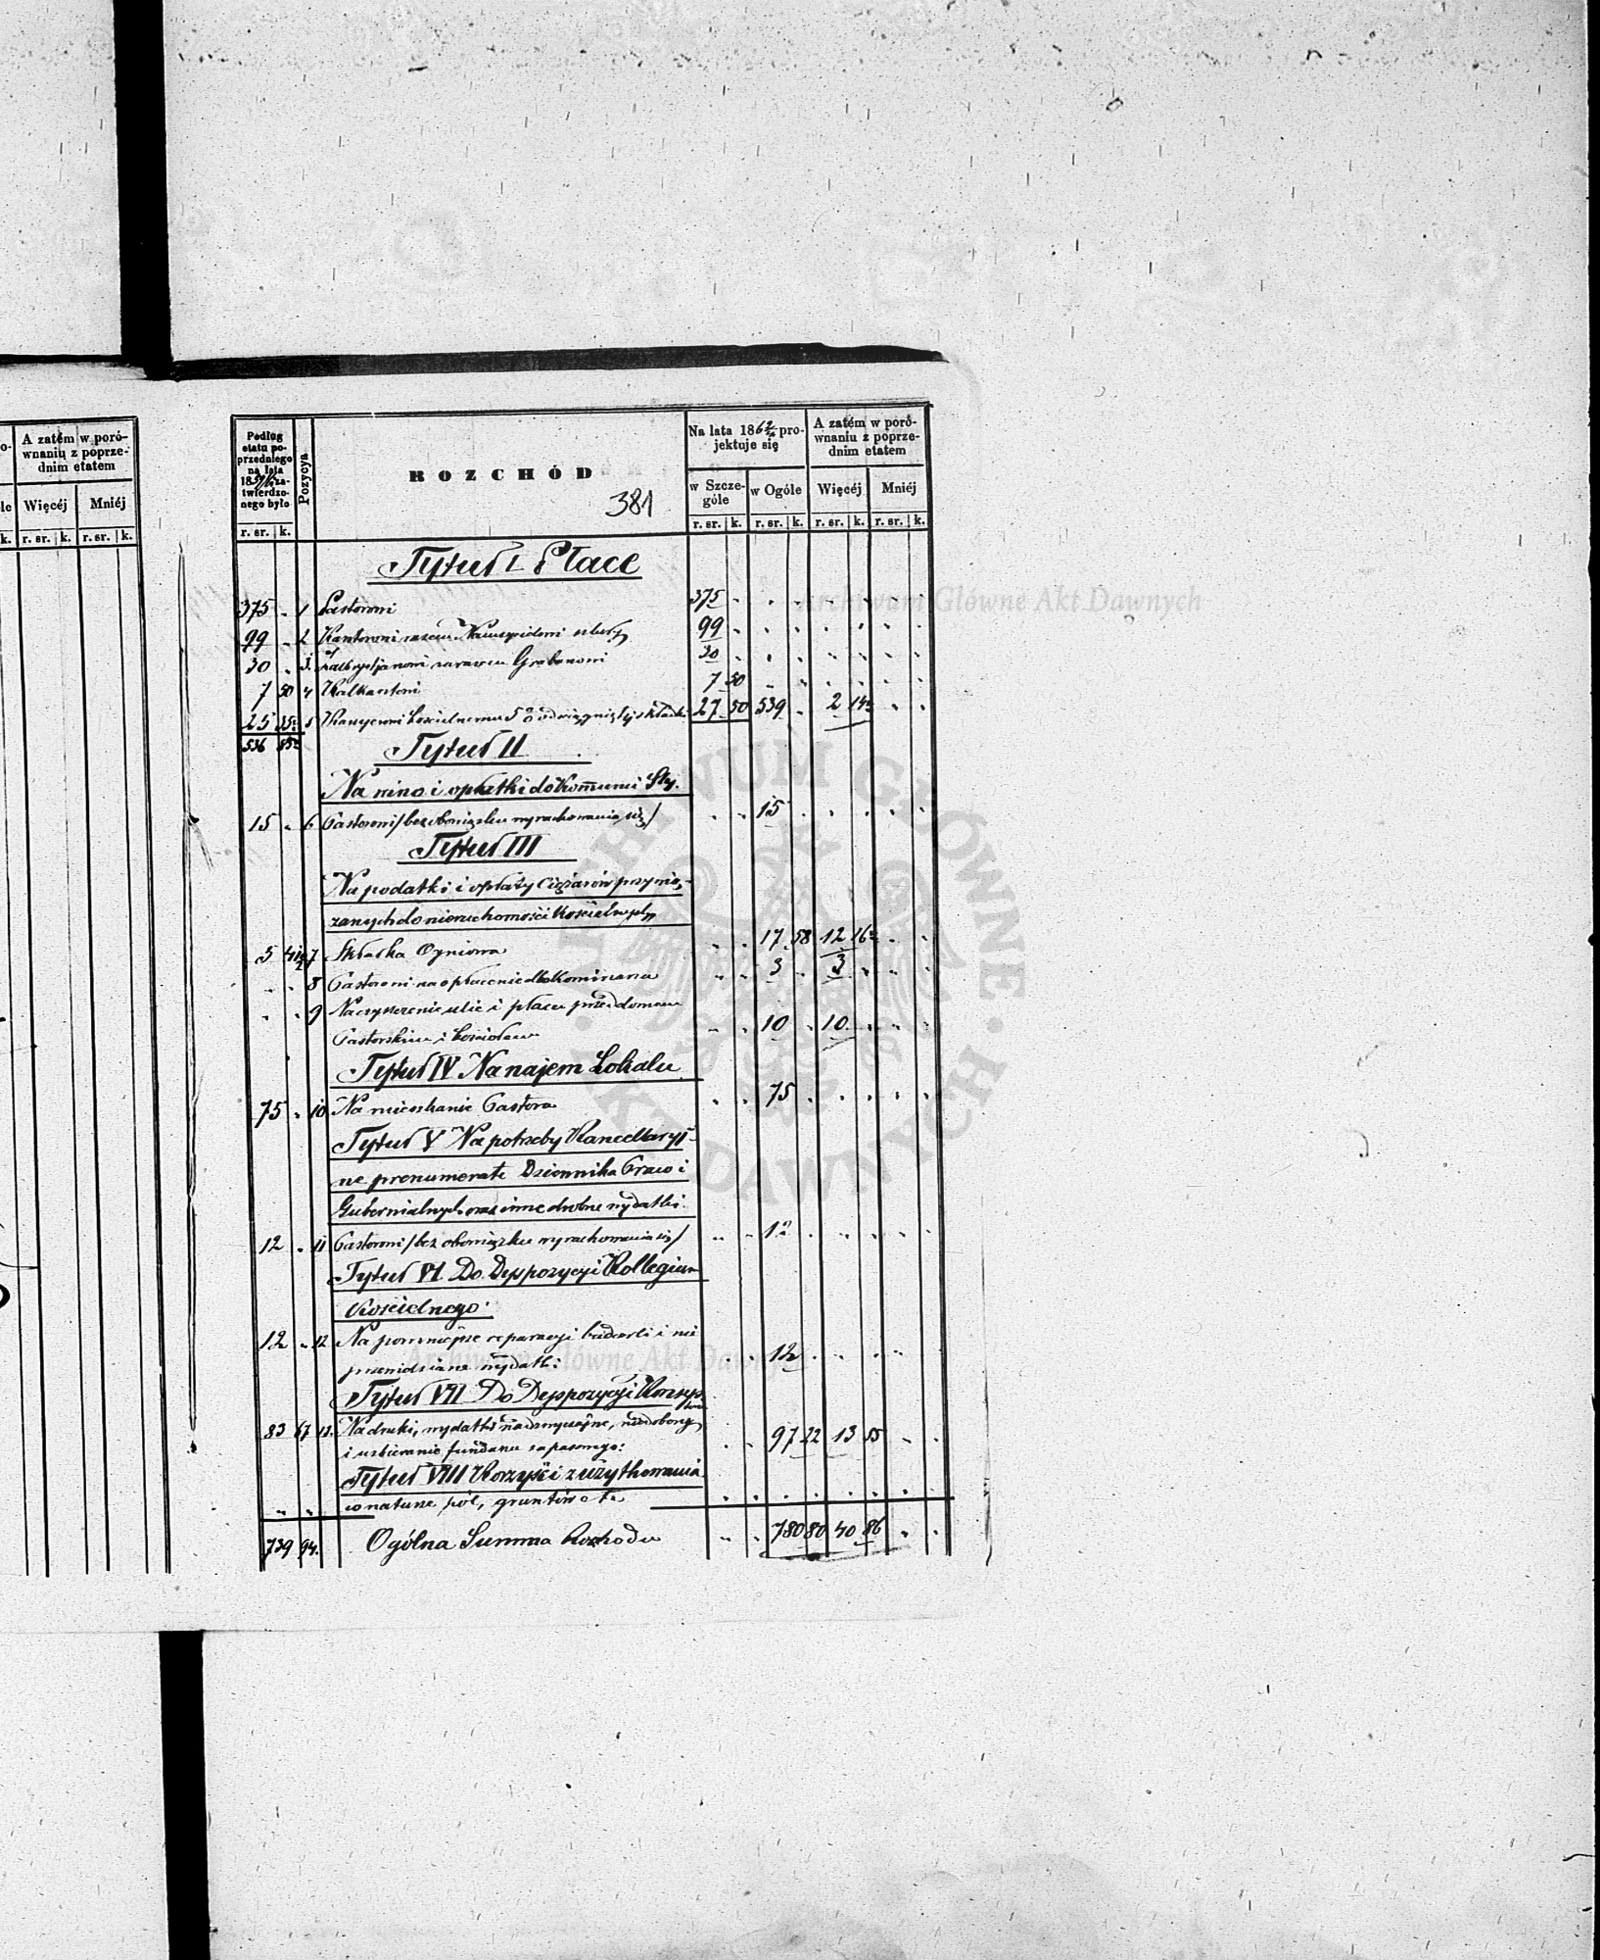 A zatém w poró-
wnaniu z poprze-
dnim etatem
Więcéj Mniéj
k. r. sr. k. r. sr. k.
Podług
etatu po-
przedniego
na lata
za-
twierdzo-
nego było
Pozycya
ROZCHÓD
381
Na lata 1862/ pro-
jektuje się
A zatém w poró-
wnaniu z poprze-
dnim etatem
w Szcze-
góle
w Ogóle Więcéj Mniéj
r. sr. k. r. sr. k. r. sr. k. r. sr. k. r. sr. k.
Tytuł I Płace
375 1 Pastorowi 375
99 2 Kantorowi razem 99
30 3. zarazem Grabarzowi 30
7 50 4 Kalkantowi 7 50
25 5 27 50 539 2
536
Tytuł II
Na wino i opłatki do Kommunii Sty.
15 6 Pastorowi /bez obowiązku wyrachowania się/ 15
Tytuł III
Na podatki i opłaty Ciężarów przywią-
zanych do nieruchomości Kościelnych
5 7 Składka Ogniowa 17 58 12
8 Pastorowi na opłacenie Kominiarza 3 3
9 Na czyszczenie ulic i placu przed domem
Pastorskim i Kościołem 10 10
Tytuł IV Na najem Lokalu
75 10 Na mieszkanie Pastora 75
Tytuł V Na potrzeby Kancellaryj-
ne prenumeratę Dziennika Praw i
Gubernialnych oraz inne drobne wydatki
12 11 Pastorowi /bez obowiązku wyrachowania się/ 12
Tytuł VI Do Dyspozycyi Kollegium
Kościelnego
12 12 Na pomniejsze reparacyi budowli i nie
przewidziane wydatki 12
Tytuł VII Do Dyspozycyi Konsys-
83 67 13. Na druki, wydatki nadzwyczajne, niedobory
i uzbieranie funduszu zapasowego: 97 22 13 55
Tytuł VIII Korzyści z użytkowania
w naturze pól, gruntów
739 94. Ogólna Summa Rozchodu 780 80 40 86
Archiwum Główne Akt Dawnych
ARCHIWUM GŁÓWNE AKT DAWNYCH
Archiwum Główne Akt Dawnych